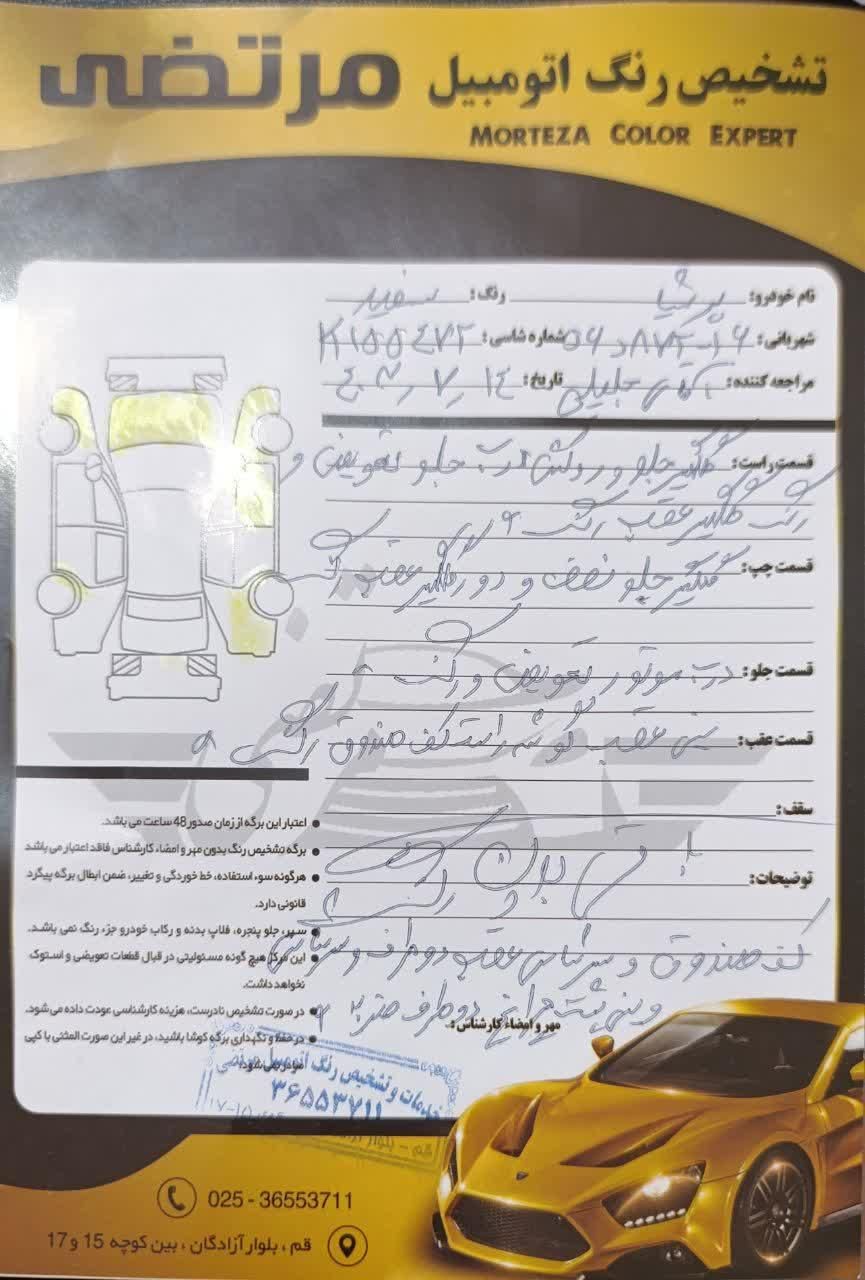 تشخیص رنگ اتومبیل مرتضی
MORTEZA COLOR EXPERT
نام خودرو: پرشیا رنگ: سفید
شهربانی: شماره شاسی: K155472
مراجعه کننده: آقای جلیلی تاریخ:
قسمت راست: گلگیر جلو و رکاب درب جلو تعویض و
رنگ گلگیر عقب رنگ
قسمت چپ: گلگیر جلو نصف و دور گلگیر عقب رنگ
قسمت جلو: درب موتور تعویض و رنگ
قسمت عقب: سینی عقب گوشه راست کف صندوق رنگ
سقف:
توضیحات:
رنگ
کف صندوق و سرشاسی عقب دو طرف و سرشاسی
و سینی پشت چراغ دو طرف ضربه
مهر و امضاء کارشناس:
● اعتبار این برگه از زمان صدور 48 ساعت می باشد.
● برگه تشخیص رنگ بدون مهر و امضاء کارشناس فاقد اعتبار می باشد
● هرگونه سوء استفاده، خط خوردگی و تغییر، ضمن ابطال برگه پیگرد
قانونی دارد.
● سپر، جلو پنجره، فلاپ بدنه و رکاب خودرو جزء رنگ نمی باشد.
● این مرکز هیچ گونه مسئولیتی در قبال قطعات تعویضی و استوک
نخواهد داشت.
● در صورت تشخیص نادرست، هزینه کارشناسی عودت داده می شود.
● در حفظ و نگهداری برگه کوشا باشید، در غیر این صورت المثنی با کپی
صادر نمی شود.
خدمات و تشخیص رنگ اتومبیل مرتضی
36553711
025 - 36553711
قم ، بلوار آزادگان ، بین کوچه 15 و 17